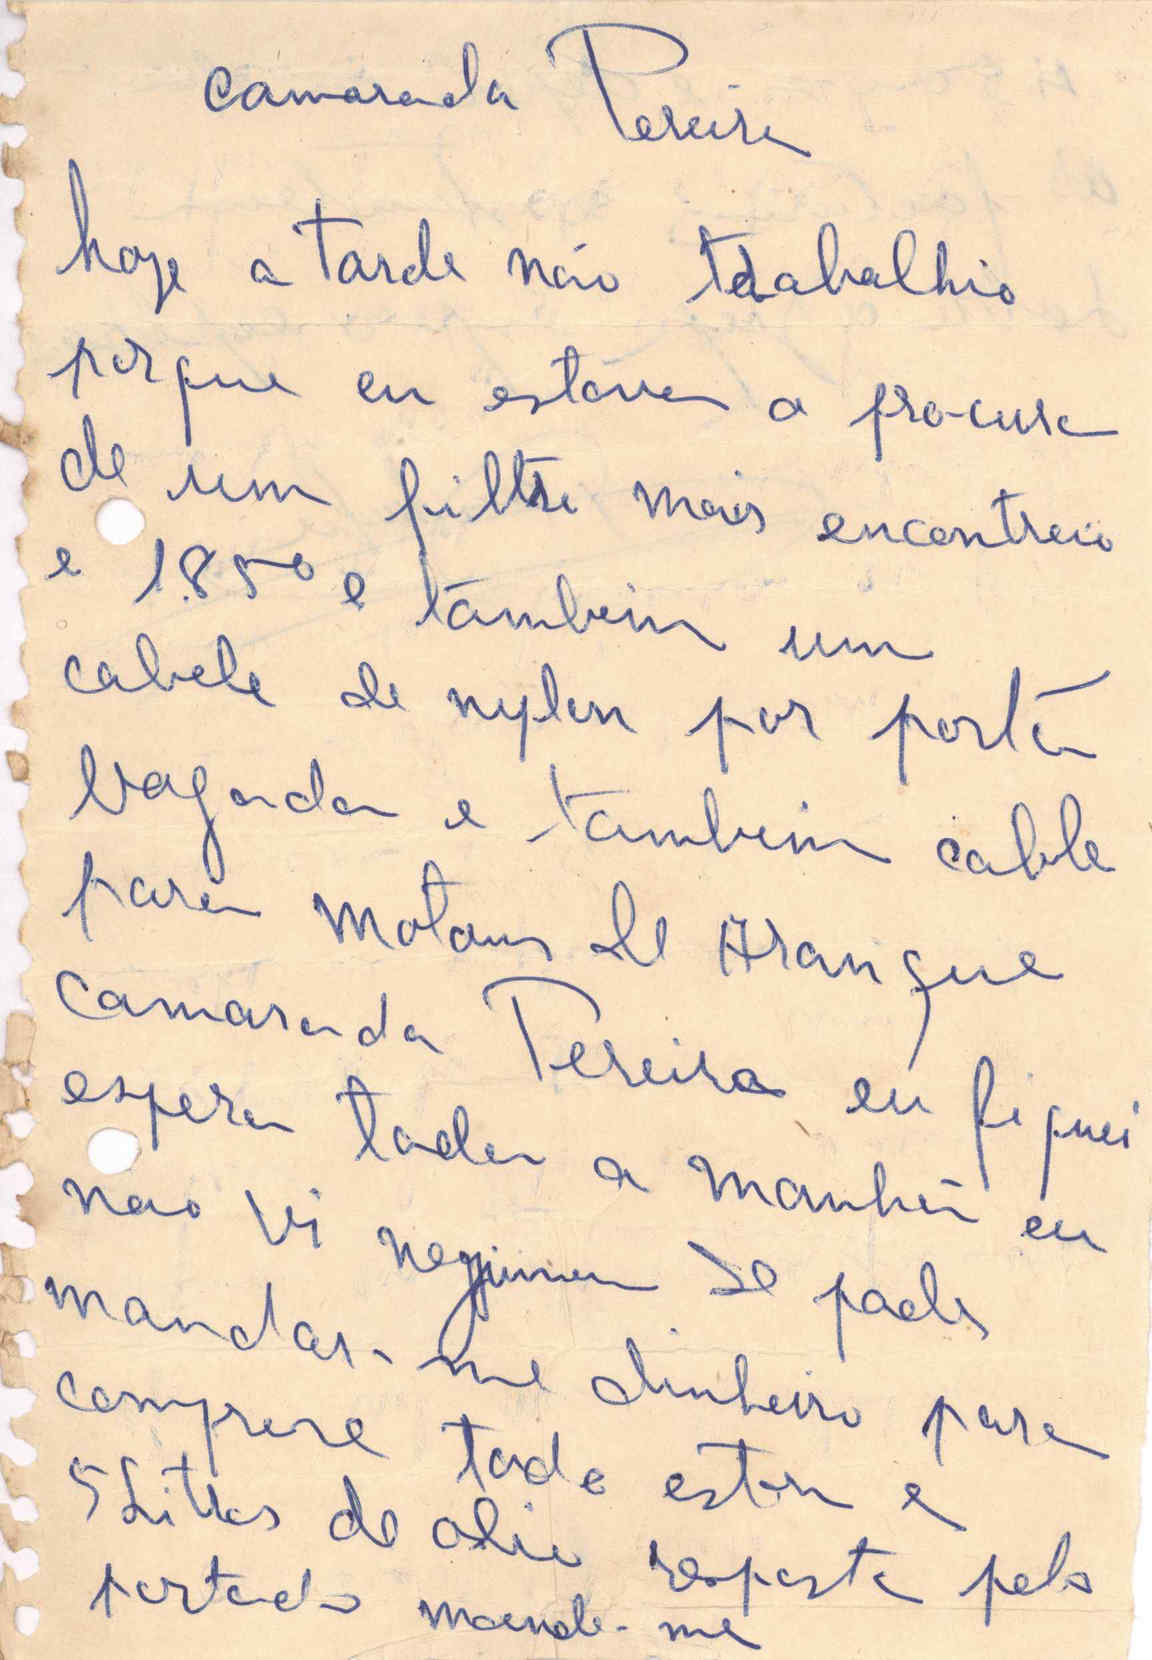 camarada Pereira
hoje a tarde não trabalhio
porque eu estava a procura
de um filtri mais encontreio
e 1.850 e tambeim um
cabele de nylon por portã
bagada e tambeim cable
para motaus de Aranque
Camarada Pereira eu fiquei
espera toda a manhã eu
nao vi neguima se pode
mandar-me dinheiro para
comprere tode esta e
5 Litres de olio resposta pelo
portado mande-me